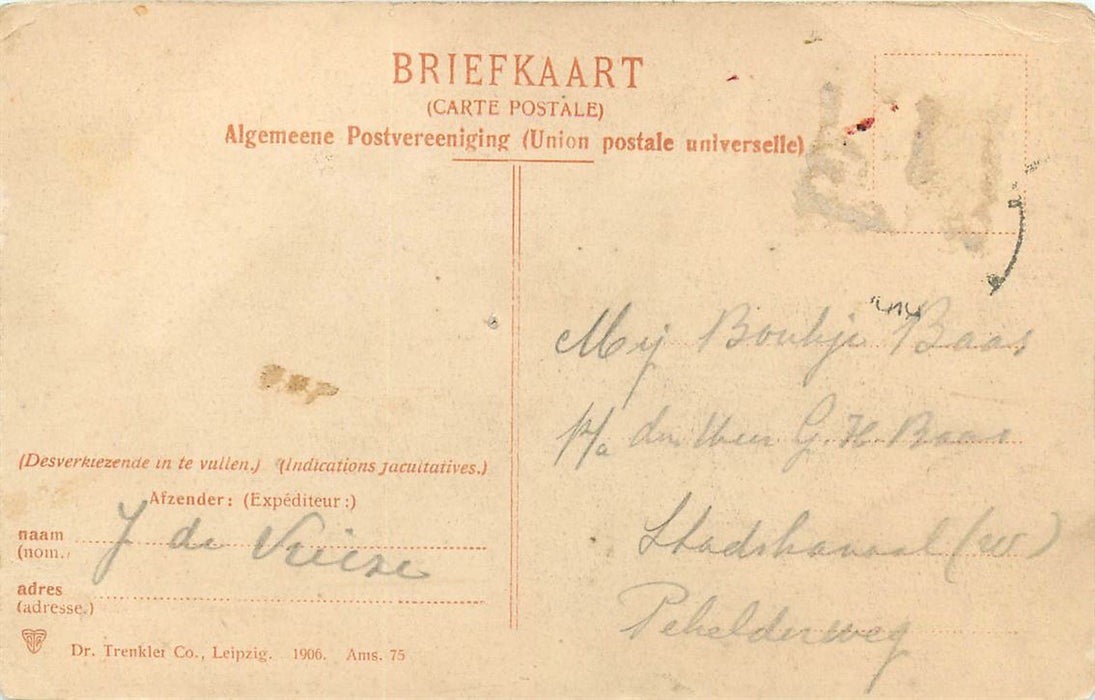 BRIEFKAART
(CARTE POSTALE)
Algemeene Postvereeniging (Union postale universelle)
Mej Boukje Baas
p/a den Heer G. H. Baas
Stadskanaal (W)
Pekelderweg
(Desverkiezende in te vullen.) (Indications facultatives.)
Afzender: (Expéditeur:)
naam J de Vriese
(nom.)
adres
(adresse.)
Dr. Trenkler Co., Leipzig. 1906. Ams. 75